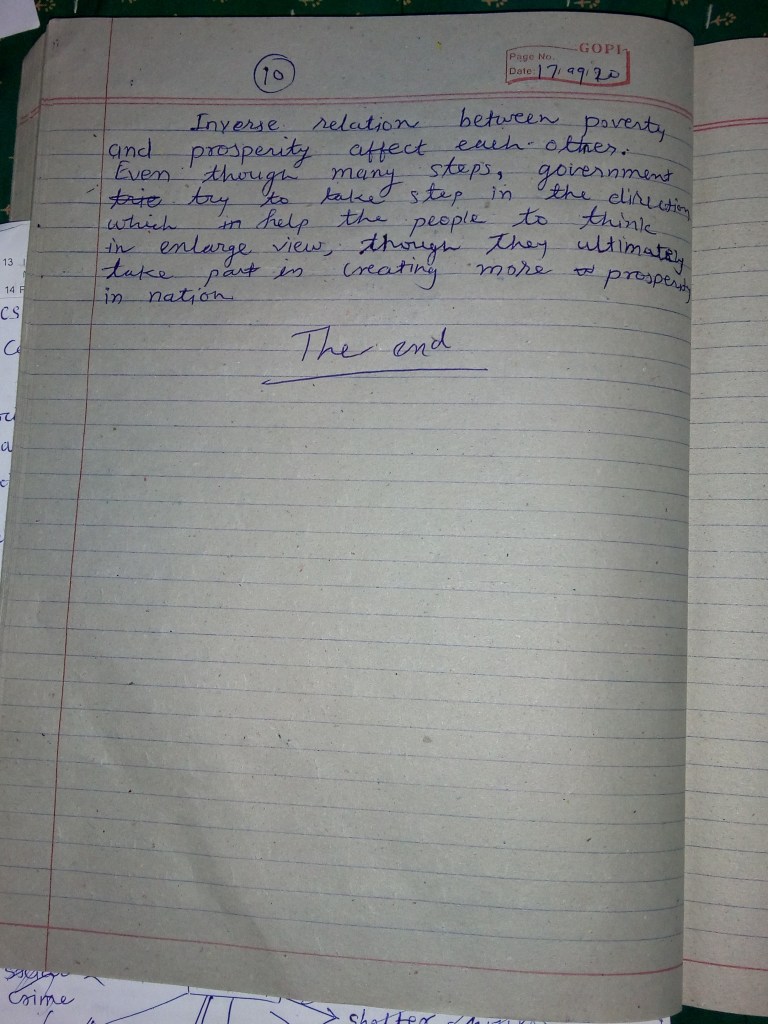 GOPI
10
Page No.
Date: 17/09/20
Inverse relation between poverty
and prosperity affect each-other.
Even though many steps, government
try to take step in the direction
which help the people to think
in enlarge view, though they ultimately
take part in creating more prosperity
in nation
The end
13
14 F
CS
Crime
shelter